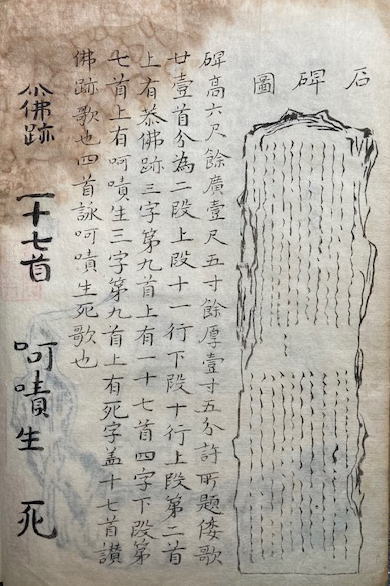 石碑圖
碑高六尺餘廣壹尺五寸餘厚壹寸五分許所題倭歌
廿壹首分為二段上段十一行下段十行上段第二首
上有恭佛跡三字第九首上有一十七首四字下段第
七首上有呵嘖生三字第九首上有死字蓋十七首讃
佛跡歌也四首詠呵嘖生死歌也
佛跡 一十七首 呵嘖生 死